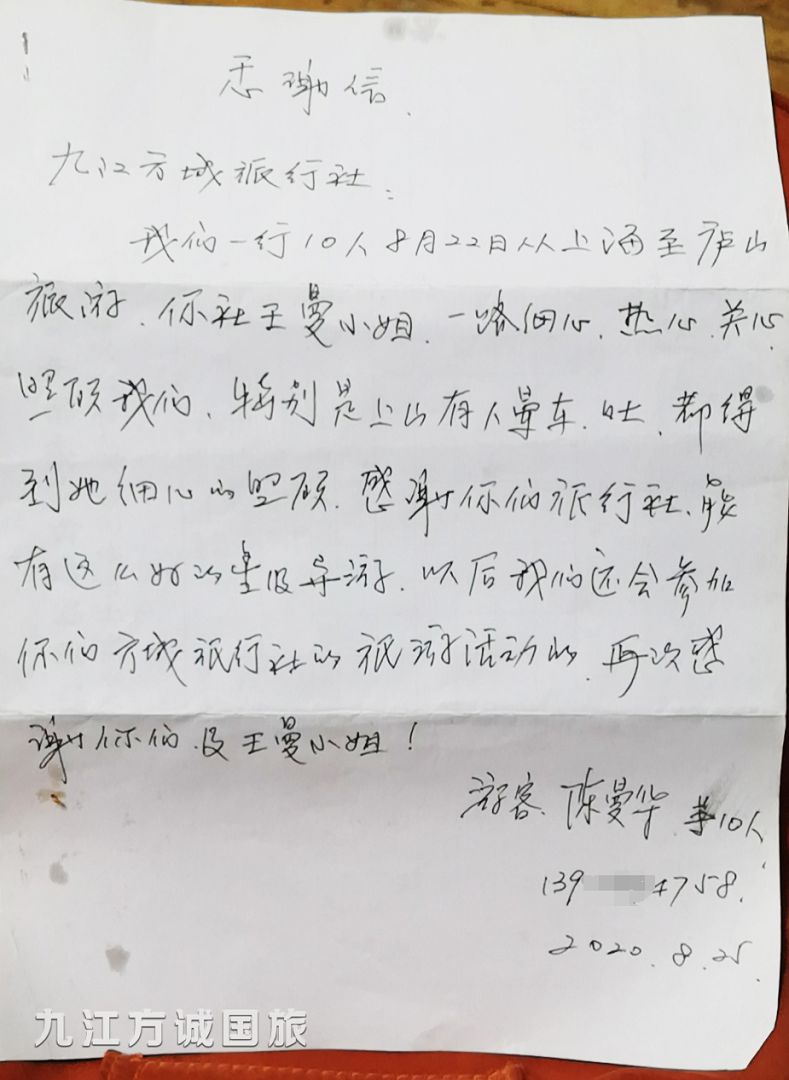 感谢信.
九江方城旅行社:
我们一行10人8月22日从上海至庐山
旅游.你社王曼小姐.一路细心.热心.关心
照顾我们、特别是上山有人晕车.吐.都得
到她细心的照顾.感谢你们旅行社、能
有这么好的星级导游.以后我们还会参加
你们方城旅行社的旅游活动的.再次感
谢你们.及王曼小姐!
游客.陈曼华.等10人
139 4758.
2020.8.25.
九江方诚国旅